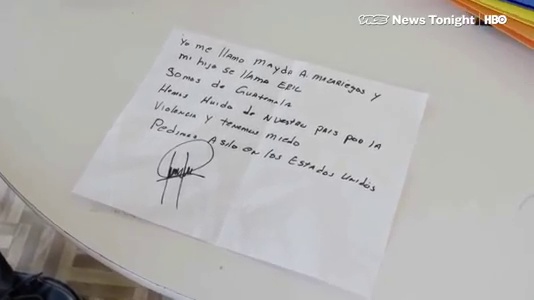 VICE News Tonight | HBO
Yo me llamo mayda A mazariegos y
mi hijo se llama ERIC
Somos de Guatemala
Hemos Huido de Nuestro pais por la
Violencia y tenemos miedo
Pedimos Asilo en los Estados Unidos